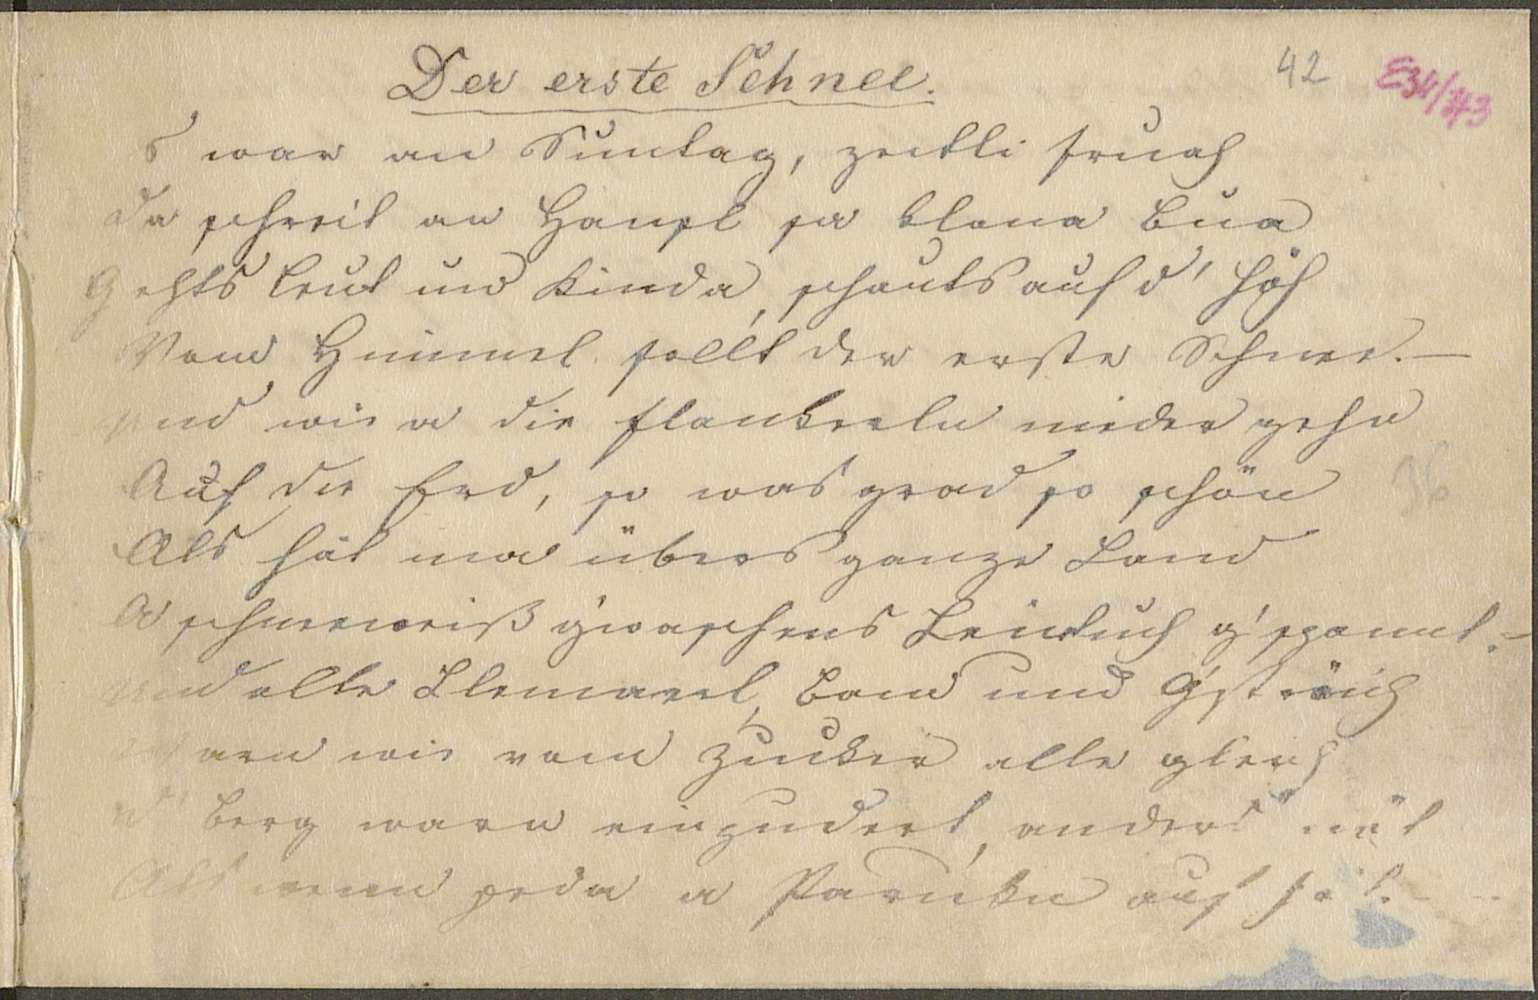 Der erste Schnee.
42
E34/43
S' war an Suntag, zeitli fruah
Da schreit an Hansl sa klana Bua
Gehts Leut und Kinda, schauts auf d' Höh
Vom Himmel fallt der erste Schnee. —
Und wia die Flankerln nieder gehn
Auf die Erd, so was grad so schön
36
Als hät ma übers ganze Land
A schneeweiß g'waschens Leintuch g'spannt. —
Und alle Blemaerl, Bam und G'sträuch
Warn wie vom Zucker alle gleich
D' Berg warn einzudeckt, anders nët
Als wenn jeda a Paruken auf hät.